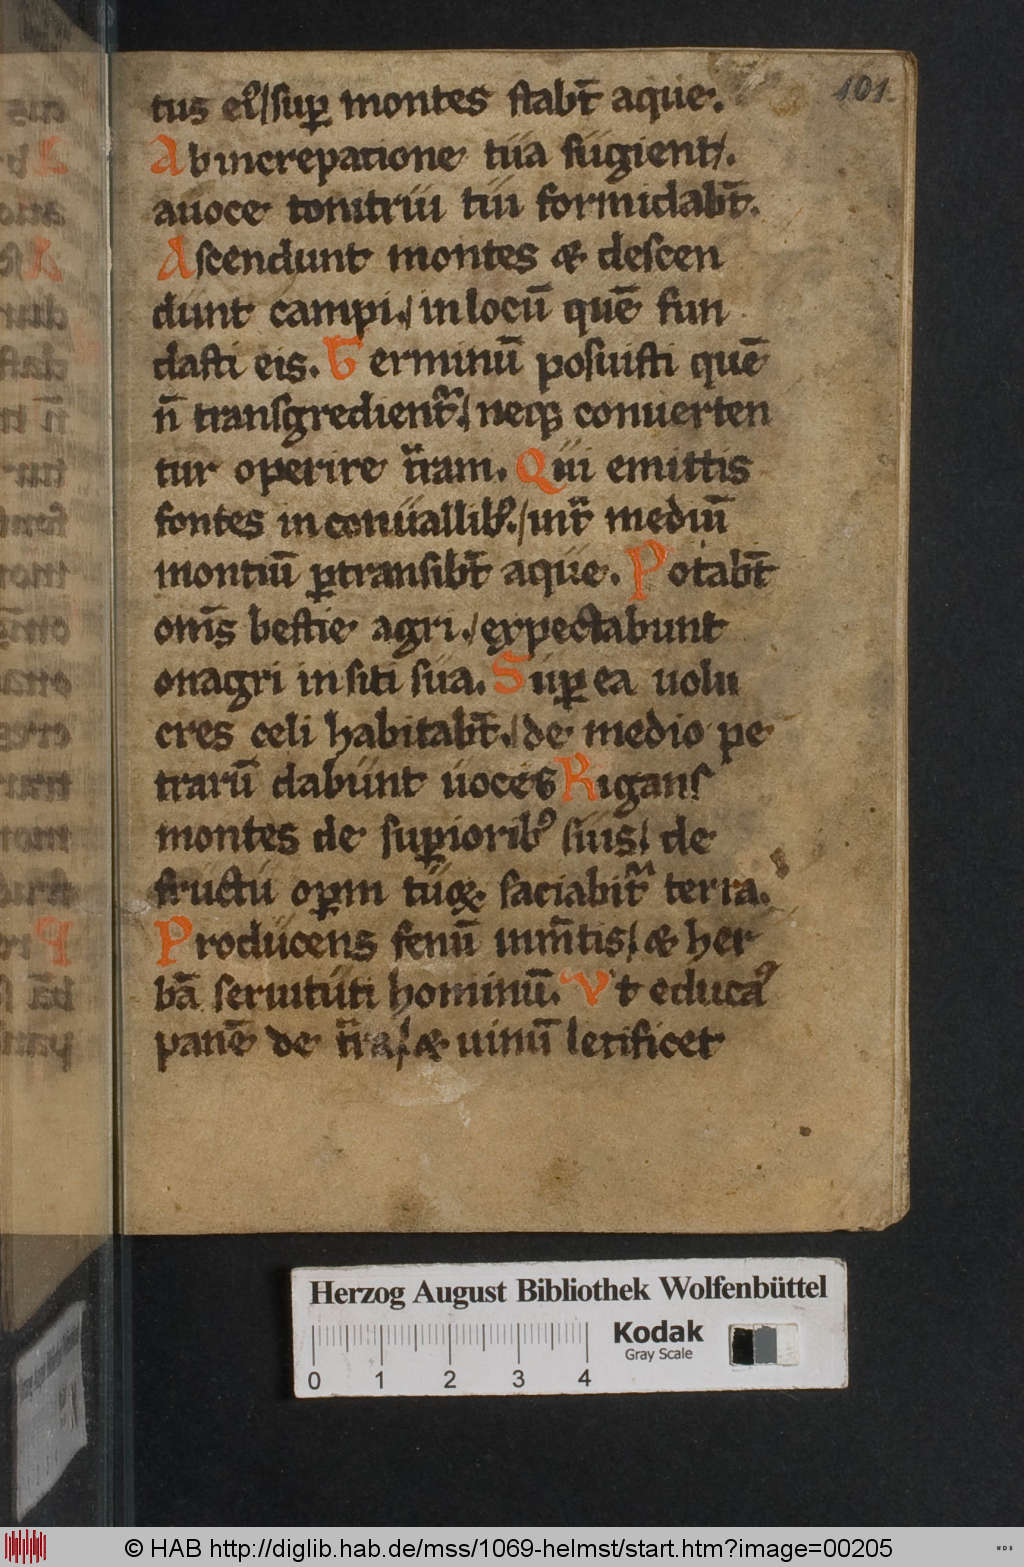 101.
tus eiꝰ/ suꝑ montes stabt̄ aque.
Ab increpatione tua fugient/.
a uoce tonitrui tui formidabt̄.
Ascendunt montes & descen
dunt campi./ in locū quē fun
dasti eis. Terminū posuisti quē
n̄ transgredient᷑/ neqꝫ conuerten
tur operire t᷑ram. Qui emittis
fontes in conuallibꝰ./ int᷑ mediū
montiū ꝑtransibt̄ aque. Potabt̄
om̄s bestie agri./ expectabunt
onagri in siti sua. Suꝑ ea uolu
cres celi habitabt̄./ de medio pe
trarū dabunt uoces Rigans
montes de suꝑioribꝰ suis/ de
fructu oꝑm tuoꝝ. saciabit᷑ terra.
Producens fenū ium̄tis/ & her
bā seruituti hominū. Ut educaꝰ
panē de t᷑ra/ & uinū letificet
Herzog August Bibliothek Wolfenbüttel
Kodak
Gray Scale
0 1 2 3 4
© HAB http://diglib.hab.de/mss/1069-helmst/start.htm?image=00205